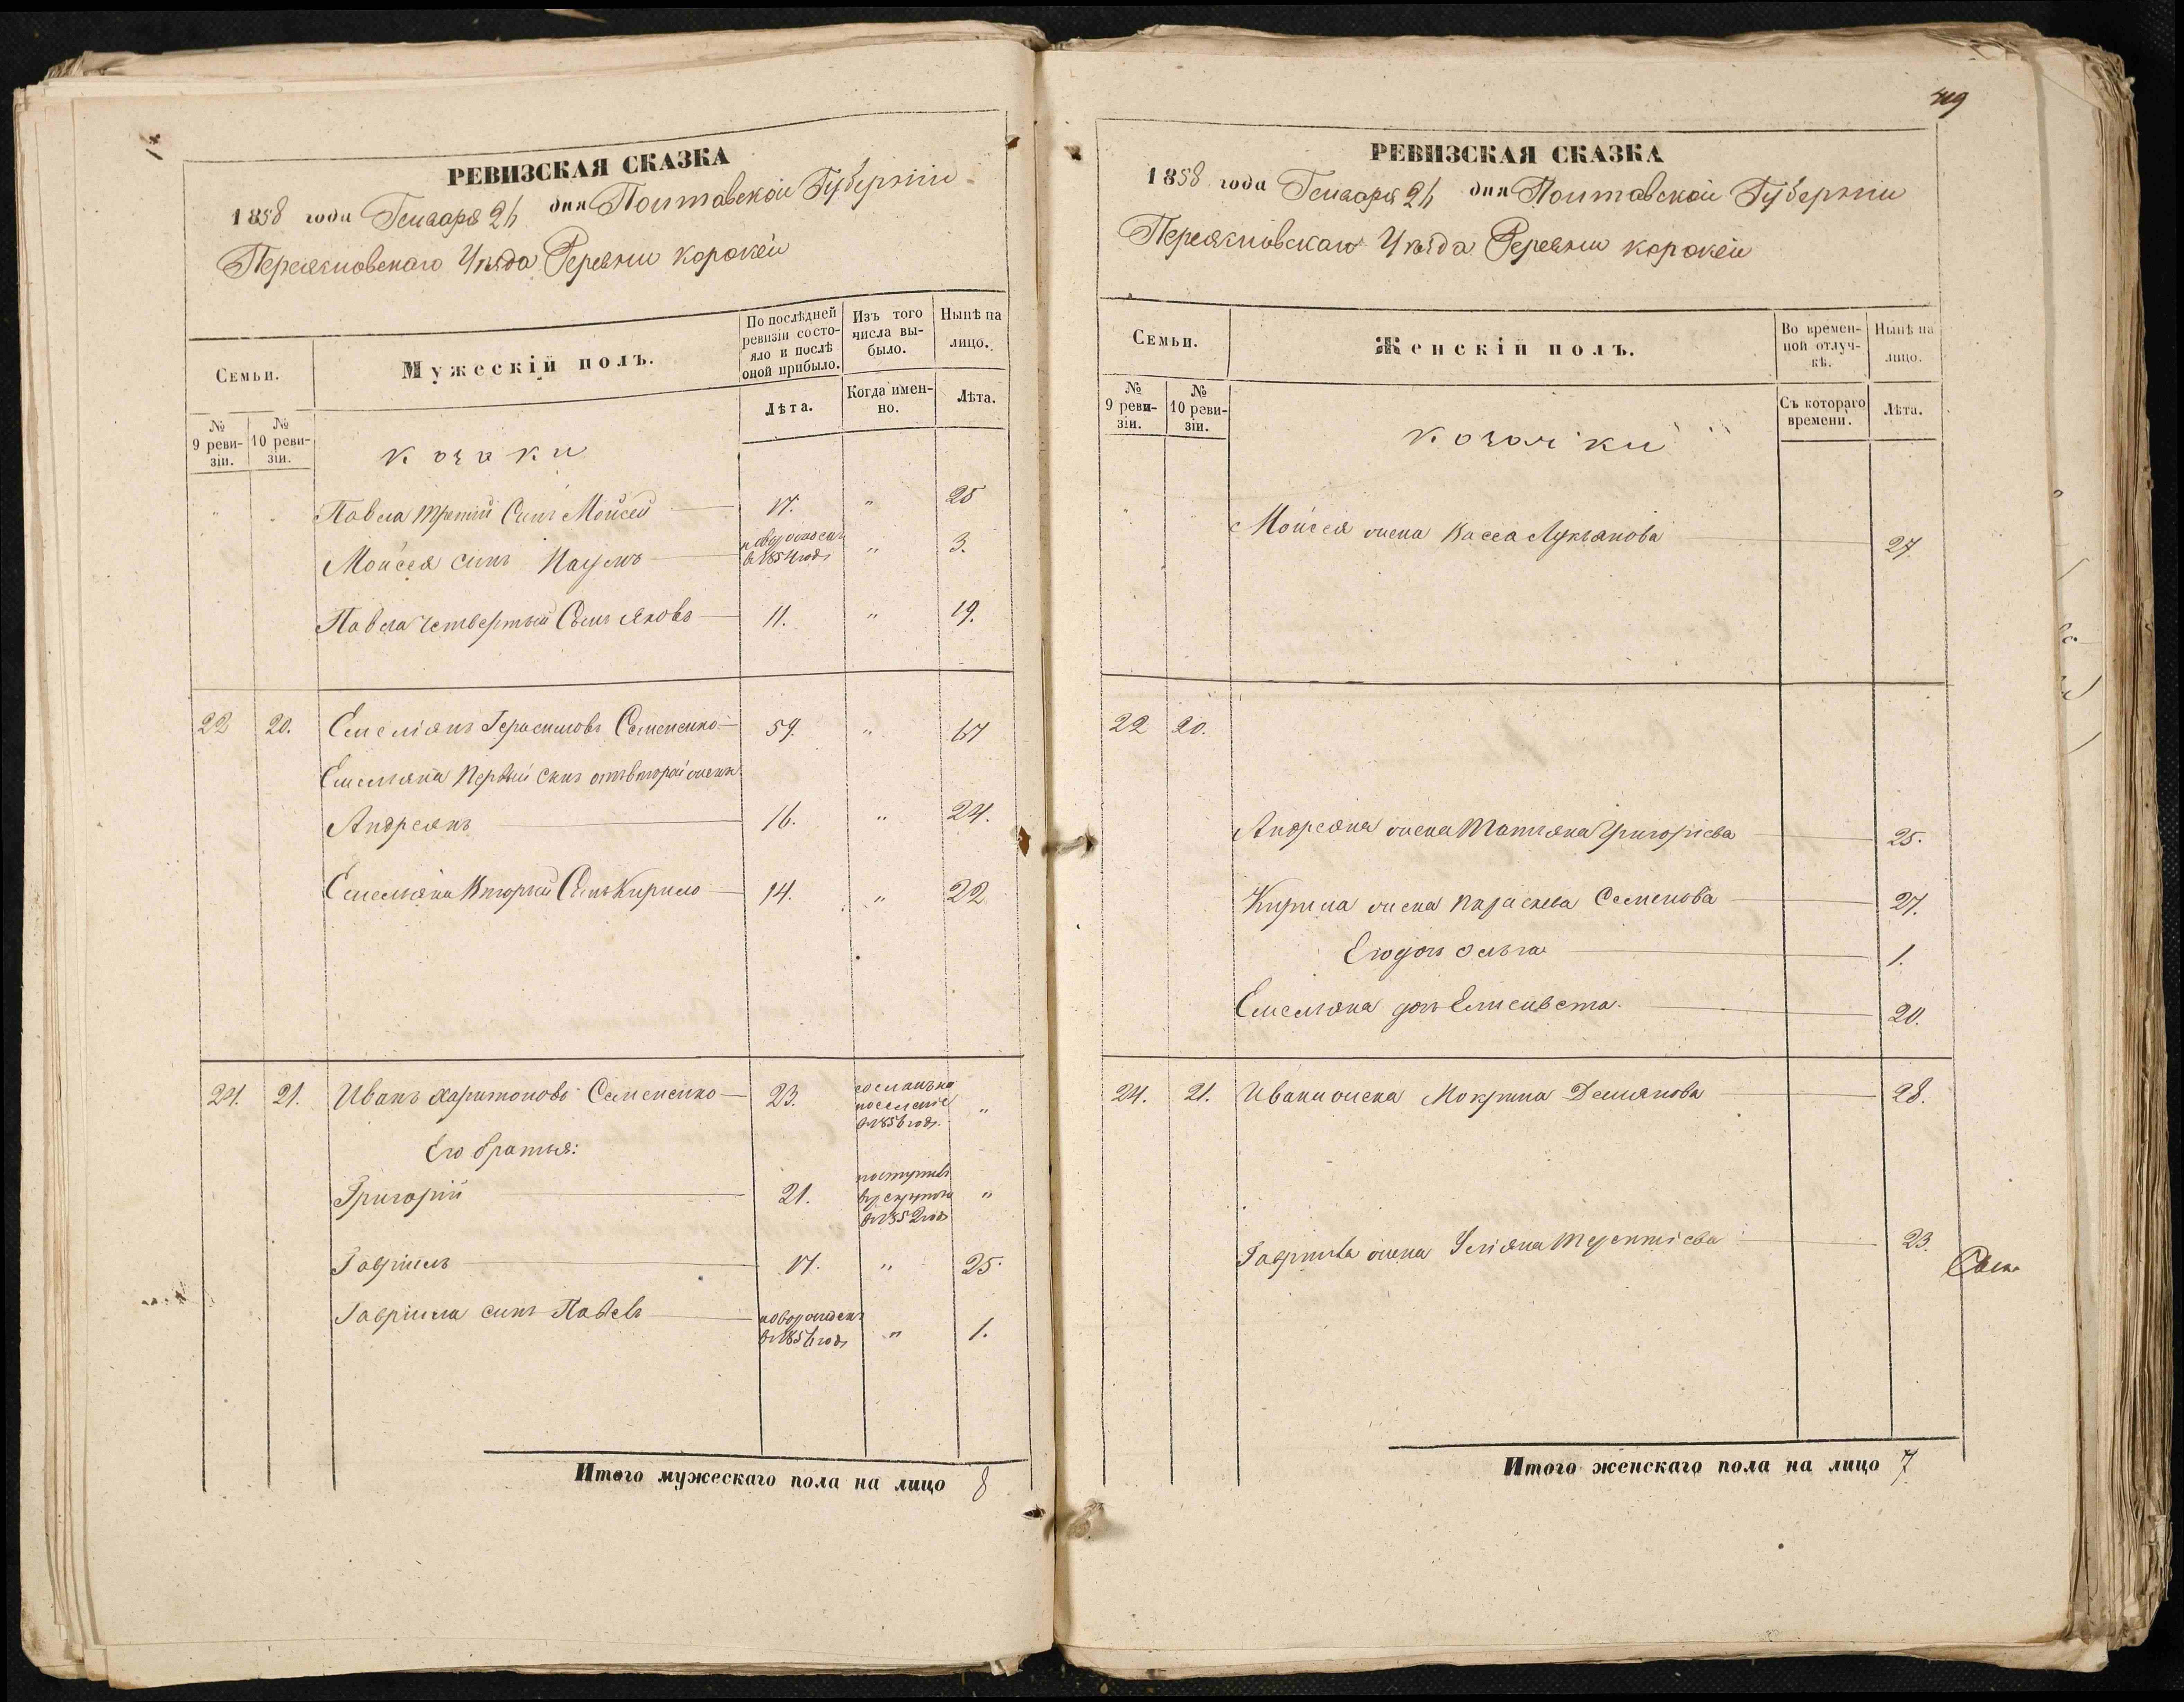 РЕВИЗСКАЯ СКАЗКА
1858 года Генваря 26 дня Полтавской Губерніи
Переясловскаго Уѣзда Деревни Корокеи
Семьи.
Мужескій полъ.
По послѣдней ревизіи состояло и послѣ оной прибыло.
Изъ того числа выбыло.
Нынѣ на лицо.
№ 9 ревизіи.
№ 10 ревизіи.
Лѣта.
Когда именно.
Лѣта.
козаки
Павла третій Синъ Мойсей 17. " 25
Мойсея синъ Наумъ новорожденъ в 1854 годѣ " 3.
Павла четвертый Сынъ Яковъ 11. " 19.
22 20. Емеліянъ Герасимовъ Семененко 59. " 67
Емельяна Первый синъ отъ второй жены
Андреянъ 16. " 24.
Емельяна Вторый Сынъ Кирило 14. " 22
24. 21. Иванъ Харитоновъ Семененко 23. сосланъ на поселеніе в 1856 годѣ. "
Его братья:
Григорій 21. поступилъ в рекруты в 1852 годѣ "
Гавріилъ 17. " 25.
Гавріила синъ Павелъ новорожденъ в 1856 годѣ " 1.
Итого мужескаго пола на лицо 8
РЕВИЗСКАЯ СКАЗКА
1858 года Генваря 26 дня Полтавской Губерніи
Переясловскаго Уѣзда Деревни Корокеи
Семьи.
Женскій полъ.
Во временной отлучкѣ.
Нынѣ на лицо.
№ 9 ревизіи.
№ 10 ревизіи.
Съ котораго времени.
Лѣта.
козачки
Мойсея жена Васса Лукьянова 27
22 20.
Андреяна жена Татьяна Григоріева 25.
Кирила жена Параскева Семенова 27.
Его дочь Ольга 1.
Емельяна дочь Елисавета 20.
24. 21. Ивана жена Мокрина Демянова 28.
Гавріила жена Уліяна Терентіева 23.
Итого женскаго пола на лицо 7